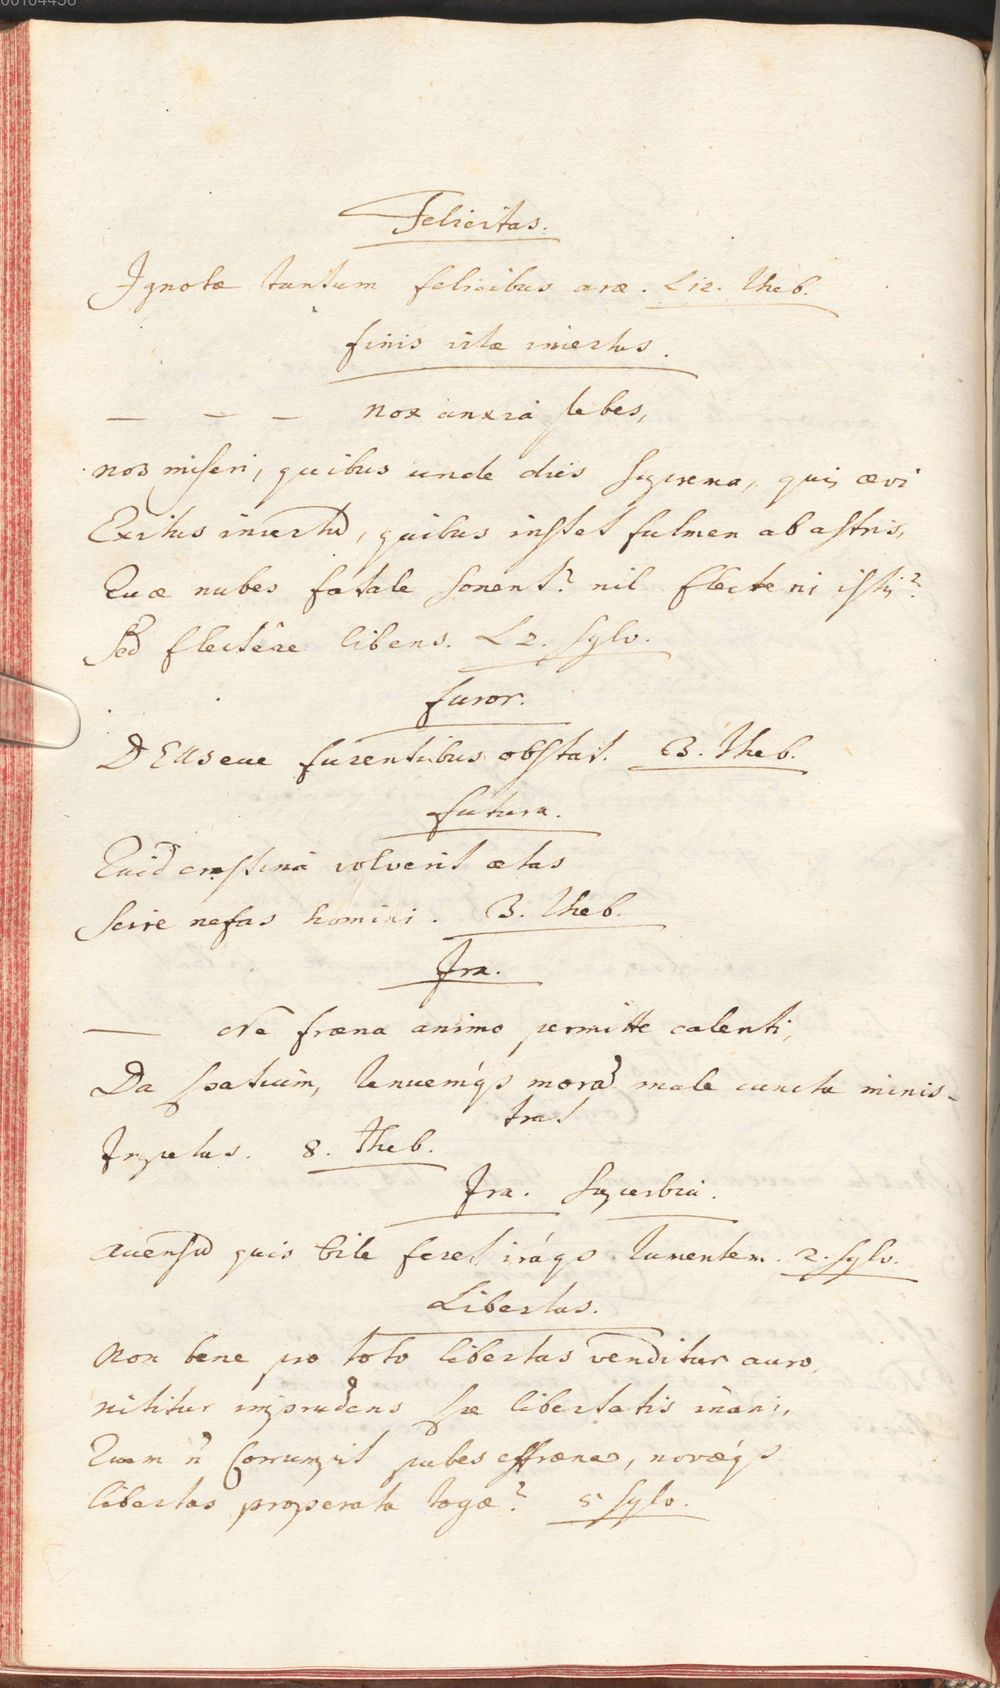 00104456
Felicitas.
Ignotæ tantum felicibus aræ. L 12. Theb.
finis vitæ incertus.
— — — nox anxia plebes,
nos miseri, quibus unde dies suprema, quis ævi
Exitus incertũ, quibus instet fulmen ab astris,
Quæ nubes fatale sonent? nil flecteris istis?
Sed flectêre libens. L 2. Sylv.
furor.
DEUSene furentibus obstat. 3. Theb.
futura.
Quid crastina volverit ætas
scire nefas homini. 3. Theb.
Ira.
— Ne fræna animo permitte calenti,
Da spatium, tenuemq́ꝫ morã male cuncta minis-
trat
Impetus. 8. Theb.
Ira. Superbia.
Auersũ quis bile feret iráqꝫ tumentem. 2. Sylv.
Libertas.
Non bene pro toto libertas venditur auro,
nititur imprudens spe libertatis inani,
Quem ñ Corrumpit pubes effræna, novæq́ꝫ
libertas properata togæ? 5 Sylv.